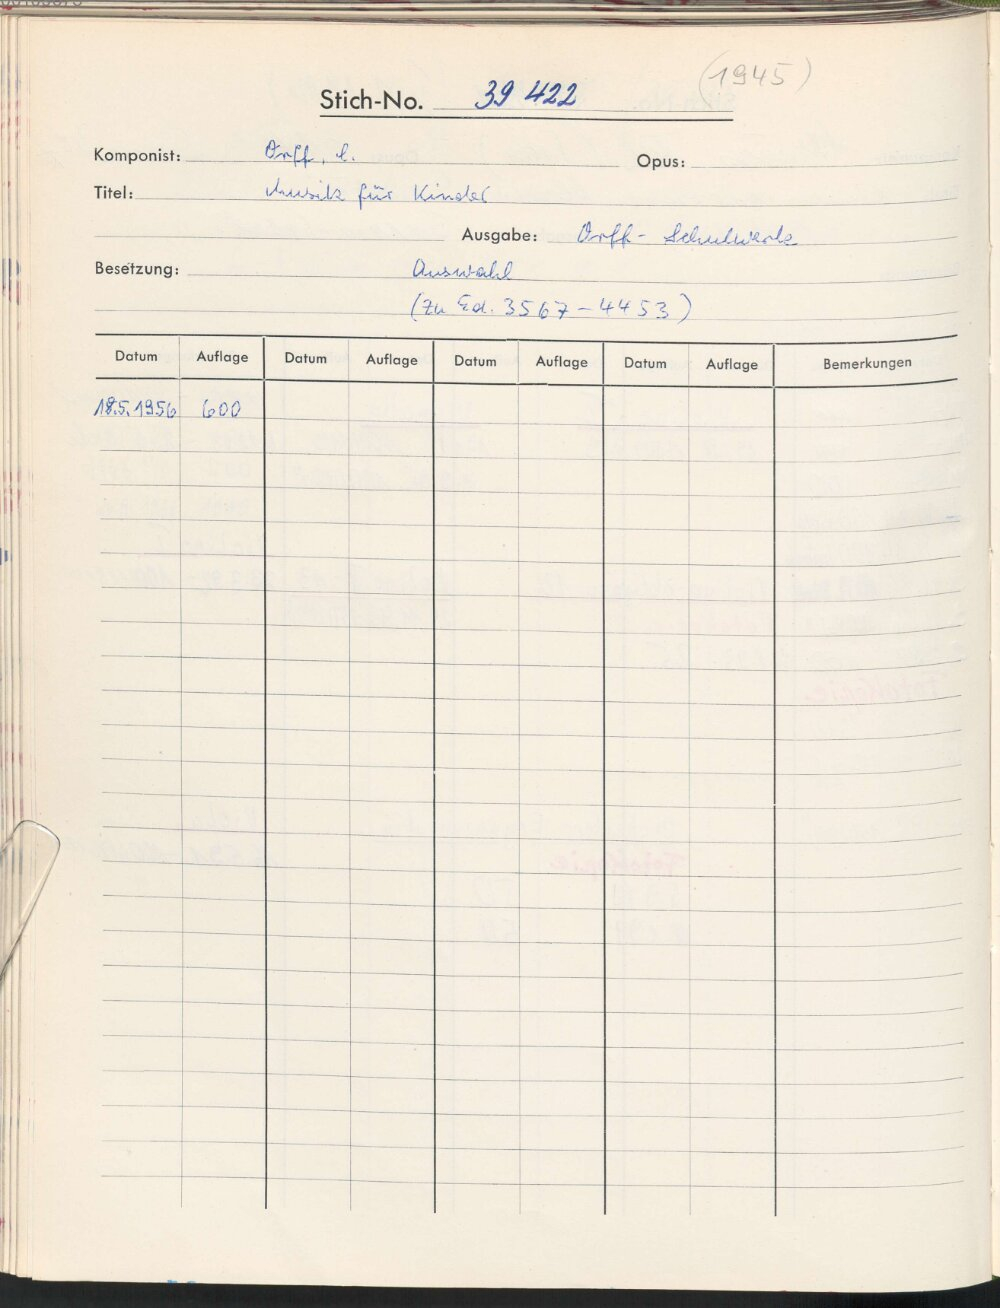 (1945)
Stich-No. 39 422
Komponist: Orff, C. Opus:
Titel: Musik für Kinder
Ausgabe: Orff-Schulwerk
Besetzung: Auswahl
(zu Ed. 3567-4453)
Datum Auflage Datum Auflage Datum Auflage Datum Auflage Bemerkungen
18.5.1956 600